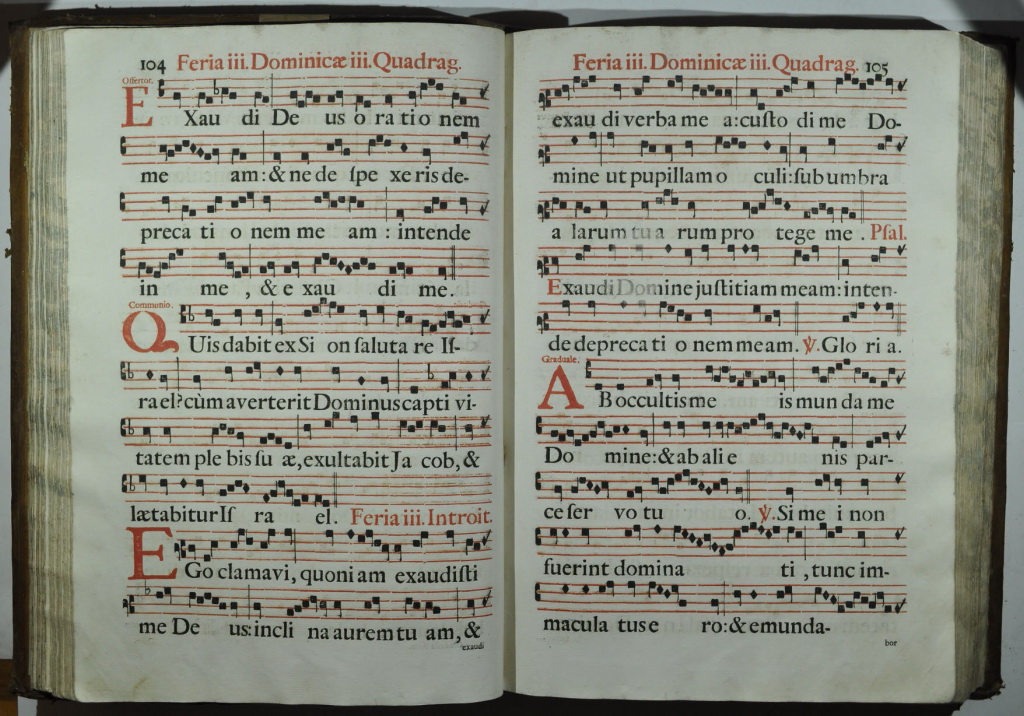 104 Feria iii. Dominicæ iii. Quadrag.
Offertor.
EXau di De us o ra ti o nem
me am: & ne de ſpe xe ris de-
preca ti o nem me am : intende
in me , & e xau di me.
Communio.
QUis dabit ex Si on ſaluta re Iſ-
rael? cùm averterit Dominus capti vi-
tatem ple bis ſu æ, exultabit Ja cob, &
lætabitur Iſ ra el. Feria iii. Introit.
EGo clamavi, quoni am exaudiſti
me De us: incli na aurem tu am, &
exaudi
Feria iii. Dominicæ iii. Quadrag. 105
exau di verba me a: cuſto di me Do-
mine ut pupillam o culi: ſub umbra
a larum tu a rum pro tege me . Pſal.
Exaudi Domine juſtitiam meam: inten-
de depreca ti o nem meam. ℣. Glo ri a.
Graduale.
AB occultis me is mun da me
Do mine: & ab ali e nis par-
ce ſer vo tu o. ℣. Si me i non
fuerint domina ti , tunc im-
macula tus e ro: & emunda-
bor